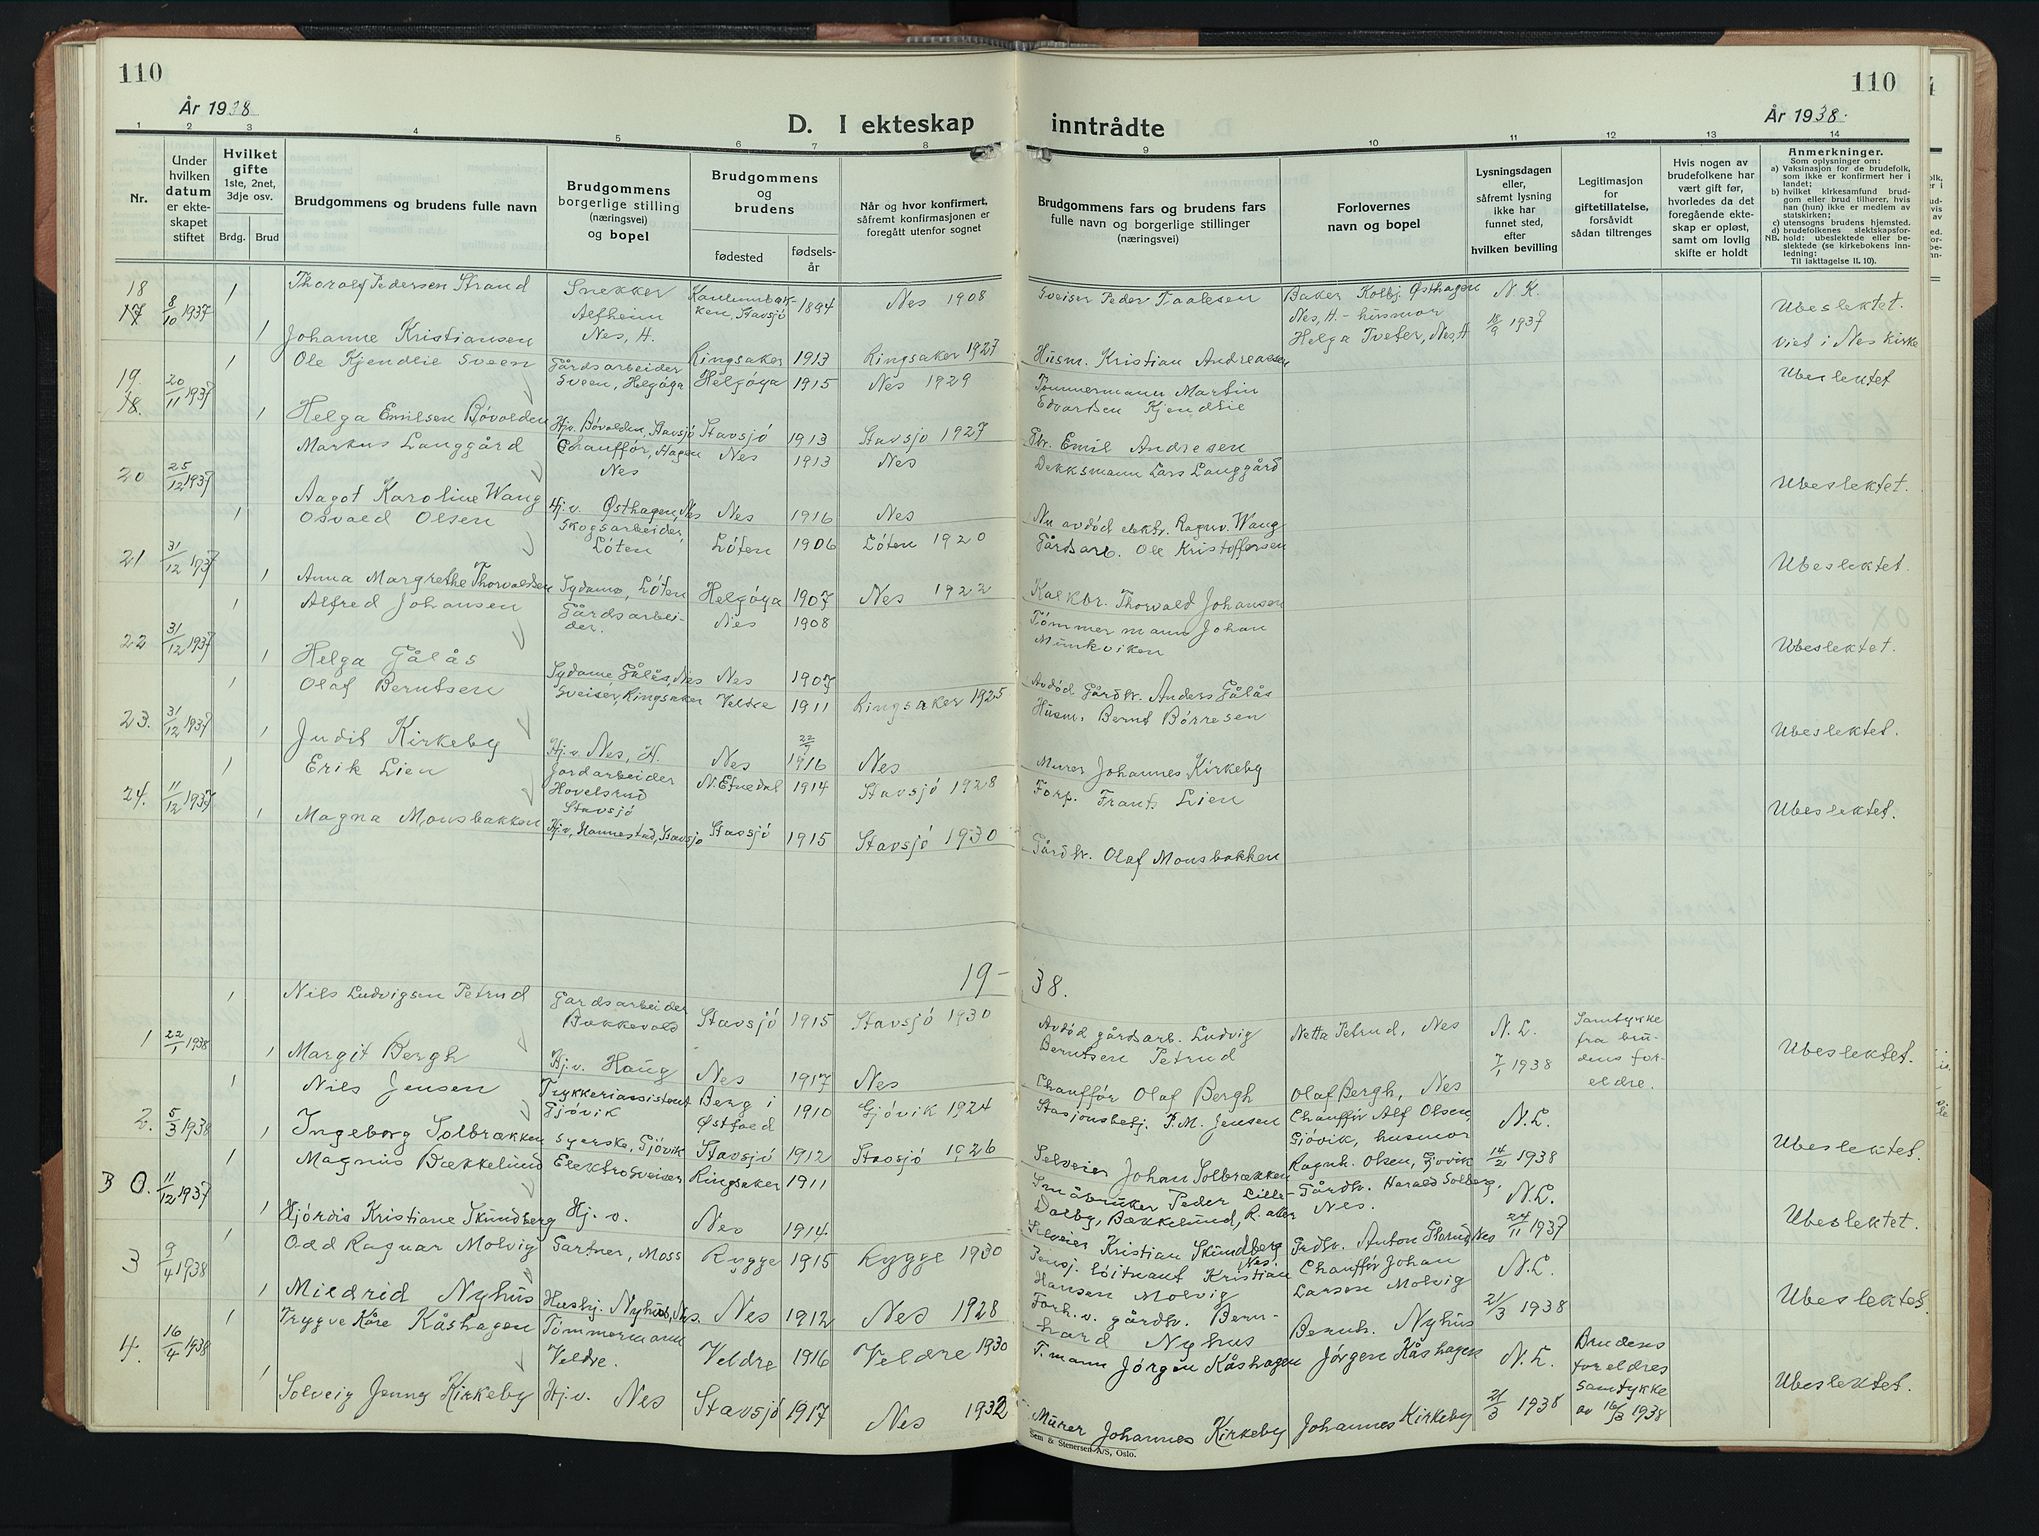 110
110
År 1938
År 1938.
D. I ekteskap inntrådte
1 2 3 4 5 6 7 8 9 10 11 12 13 14
Nr.
Under hvilken datum er ekteskapet stiftet
Hvilket gifte
1ste, 2net, 3dje osv.
Brdg. Brud
Brudgommens og brudens fulle navn
Brudgommens borgerlige stilling (næringsvei) og bopel
Brudgommens og brudens
fødested
fødselsår
Når og hvor konfirmert, såfremt konfirmasjonen er foregått utenfor sognet
Brudgommens fars og brudens fars fulle navn og borgerlige stillinger (næringsvei)
Forlovernes navn og bopel
Lysningsdagen eller, såfremt lysning ikke har funnet sted, efter hvilken bevilling
Legitimasjon for giftetillatelse, forsåvidt sådan tiltrenges
Hvis nogen av brudefolkene har vært gift før, hvorledes da det foregående ekteskap er opløst, samt om lovlig skifte er holdt
Anmerkninger.
Som oplysninger om:
a) Vaksinasjon for de brudefolk, som ikke er konfirmert her i landet;
b) hvilket kirkesamfund brudgom eller brud tilhører, hvis han (hun) ikke er medlem av statskirken;
c) utensogns brudens hjemsted.
d) brudefolkenes slektskapsforhold: ubeslektede eller beslektede (se kirkebokens innledning:
NB. Til iakttagelse II. 10).
18 17 8/10 1937 1 Thoralf Pedersen Strand Snekker Alfheim Nes, H. Stavsjø 1894 Nes 1908 Sveiser Peder Taalesen Baker Kolbj. Østhagen Nes, H. - husmor N.K. Ubeslektet.
1 Johanne Kristiansen Ringsaker 1913 Ringsaker 1927 Husm. Kristian Andreassen Helga Tveter, Nes, H 18/9 1937 viet i Nes kirke
19. 18. 20/11 1937 1 Ole Kjendlie Sveen Gårdsarbeider Sveen, Helgøya Helgøya 1915 Nes 1929 Tømmermann Martin Edvartsen Kjendlie Ubeslektet
1 Helga Emilsen Bøvolden Hj.v. Bøvolden, Stavsjø Stavsjø 1913 Stavsjø 1927 Gbr. Emil Andresen
20 25/12 1937 Markus Langgård Chauffør, Hagen Nes Nes 1913 Nes Dekksmann Lars Langgård Ubeslektet.
Aagot Karoline Wang Hj.v. Østhagen, Nes Nes 1916 Nes Nu avdød elektr. Ragnv. Wang
21 31/12 1937 1 Osvald Olsen Skogsarbeider, Løten Løten 1906 Løten 1920 Gårdsarb. Ole Kristoffersen Ubeslektet.
1 Anna Margrethe Thorvaldsen Sydame, Løten Helgøya 1907 Nes 1922 Kalkbr. Thorvald Johansen
22 31/12 1937 1 Alfred Johansen Gårdsarbeider. Nes 1908 Tømmermann Johan Munkviken Ubeslektet.
1 Helga Gålås Sydame Gålås, Nes Nes 1907 Avdød Gårdbr. Anders Gålås
23. 31/12 1937 1 Olaf Berntsen Sveiser, Ringsaker Veldre 1911 Ringsaker 1925 Husm. Bernt Børresen Ubeslektet.
1 Judit Kirkeby Hj.v. Nes, H. Nes 22/9 1916 Nes Murer Johannes Kirkeby
24. 11/12 1937 1 Erik Lien Jordarbeider Hovelsrud Stavsjø N. Etnedal 1914 Stavsjø 1928 Forp. Frants Lien Ubeslektet.
1 Magna Monsbakken Hj.v, Hannestad, Stavsjø Stavsjø 1915 Stavsjø 1930 Gårdbr. Olaf Monsbakken
19-38.
1 22/1 1938 1 Nils Ludvigsen Petrud Gårdsarbeider Bækkevold Stavsjø 1915 Stavsjø 1930 Avdød gårdsarb. Ludvig Berntsen Petrud Netta Petrud, Nes N.L. 7/1 1938 Samtykke fra brudens foreldre. Ubeslektet.
1 Margit Bergh Hj.v. Haug Nes 1917 Nes Chauffør Olaf Bergh Olaf Bergh, Nes
2. 5/3 1938 1 Nils Jensen Trykkeriassistent Gjøvik Berg i Østfold 1910 Gjøvik 1924 Stasjonsbetj. P.M. Jensen Chauffør Alf Olsen, Gjøvik, husmor N.L. Ubeslektet.
1 Ingeborg Solbrækken Syerske, Gjøvik Stavsjø 1912 Stavsjø 1926 Selveier Johan Solbrækken Ragnh. Olsen, Gjøvik 14/2 1938
3 0. 11/12 1937 1 Magnus Bækkelund Elektrosveiser Ringsaker 1911 Småbruker Peder Lille-Dalby, Bækkelund, R.aker Gårdbr. Harald Solberg, Nes. N.L. Ubeslektet.
1 Hjørdis Kristiane Skundberg Hj.v. Nes 1914 Selveier Kristian Skundberg Nes. Grdbr. Anton Nes 24/11 1937
3 9/4 1938 1 Odd Ragnar Molvig Gartner, Moss Rygge 1915 Rygge 1930 Pensj. løitnant Kristian Hansen Molvig Chauffør Johan Larsen Molvig N.L. Ubeslektet.
1 Mildrid Nyhus Husbj. Nyhus, Nes. Nes 1912 Nes 1928 Forh.v. gårdbr. Bernhard Nyhus Bernh. Nyhus 21/3 1938
4. 16/4 1938 1 Trygve Kåre Kåshagen Tømmermann Veldre. Veldre 1916 Veldre 1930 T.mann Jørgen Kåshagen Jørgen Kåshagen N.L. Brudens foreldres samtykke av 16/3 1938 Ubeslektet.
1 Solveig Jenny Kirkeby Hj.v. Nes Stavsjø 1917 Nes 1932 Murer Johannes Kirkeby Johannes Kirkeby 21/3 1938
Sem & Stenersen A/S, Oslo.